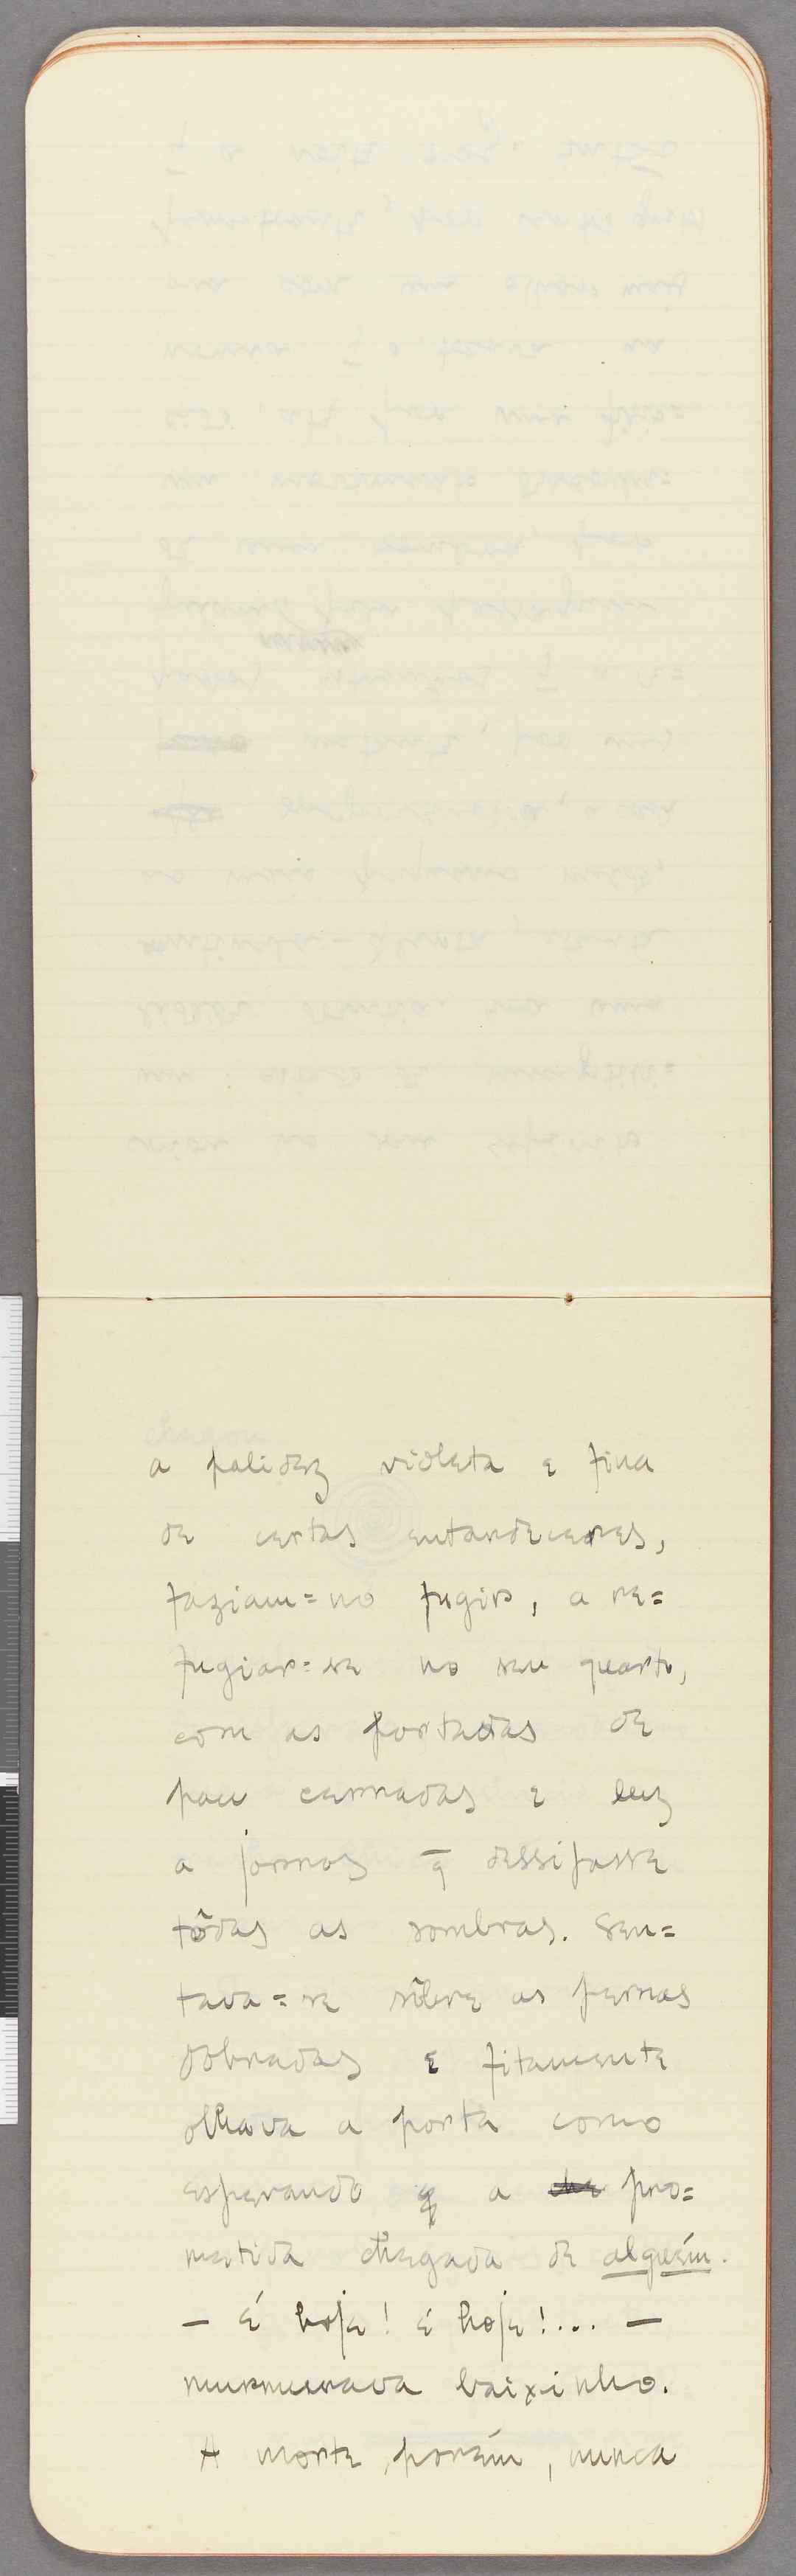 a palidez violeta e fina
de certas entardeceres,
faziam=no fugir, a re=
fugiar=se no seu quarto,
com as portadas de
pau cerradas e luz
a jorros q̄ dessipasse
tôdas as sombras. Sen=
tava=se sôbre as pernas
dobradas e fitamente
olhava a porta como
esperando q a che pro=
metida chegada de alguém.
— É hoje! é hoje!... —
murmurava baixinho.
A morte, porém, nunca